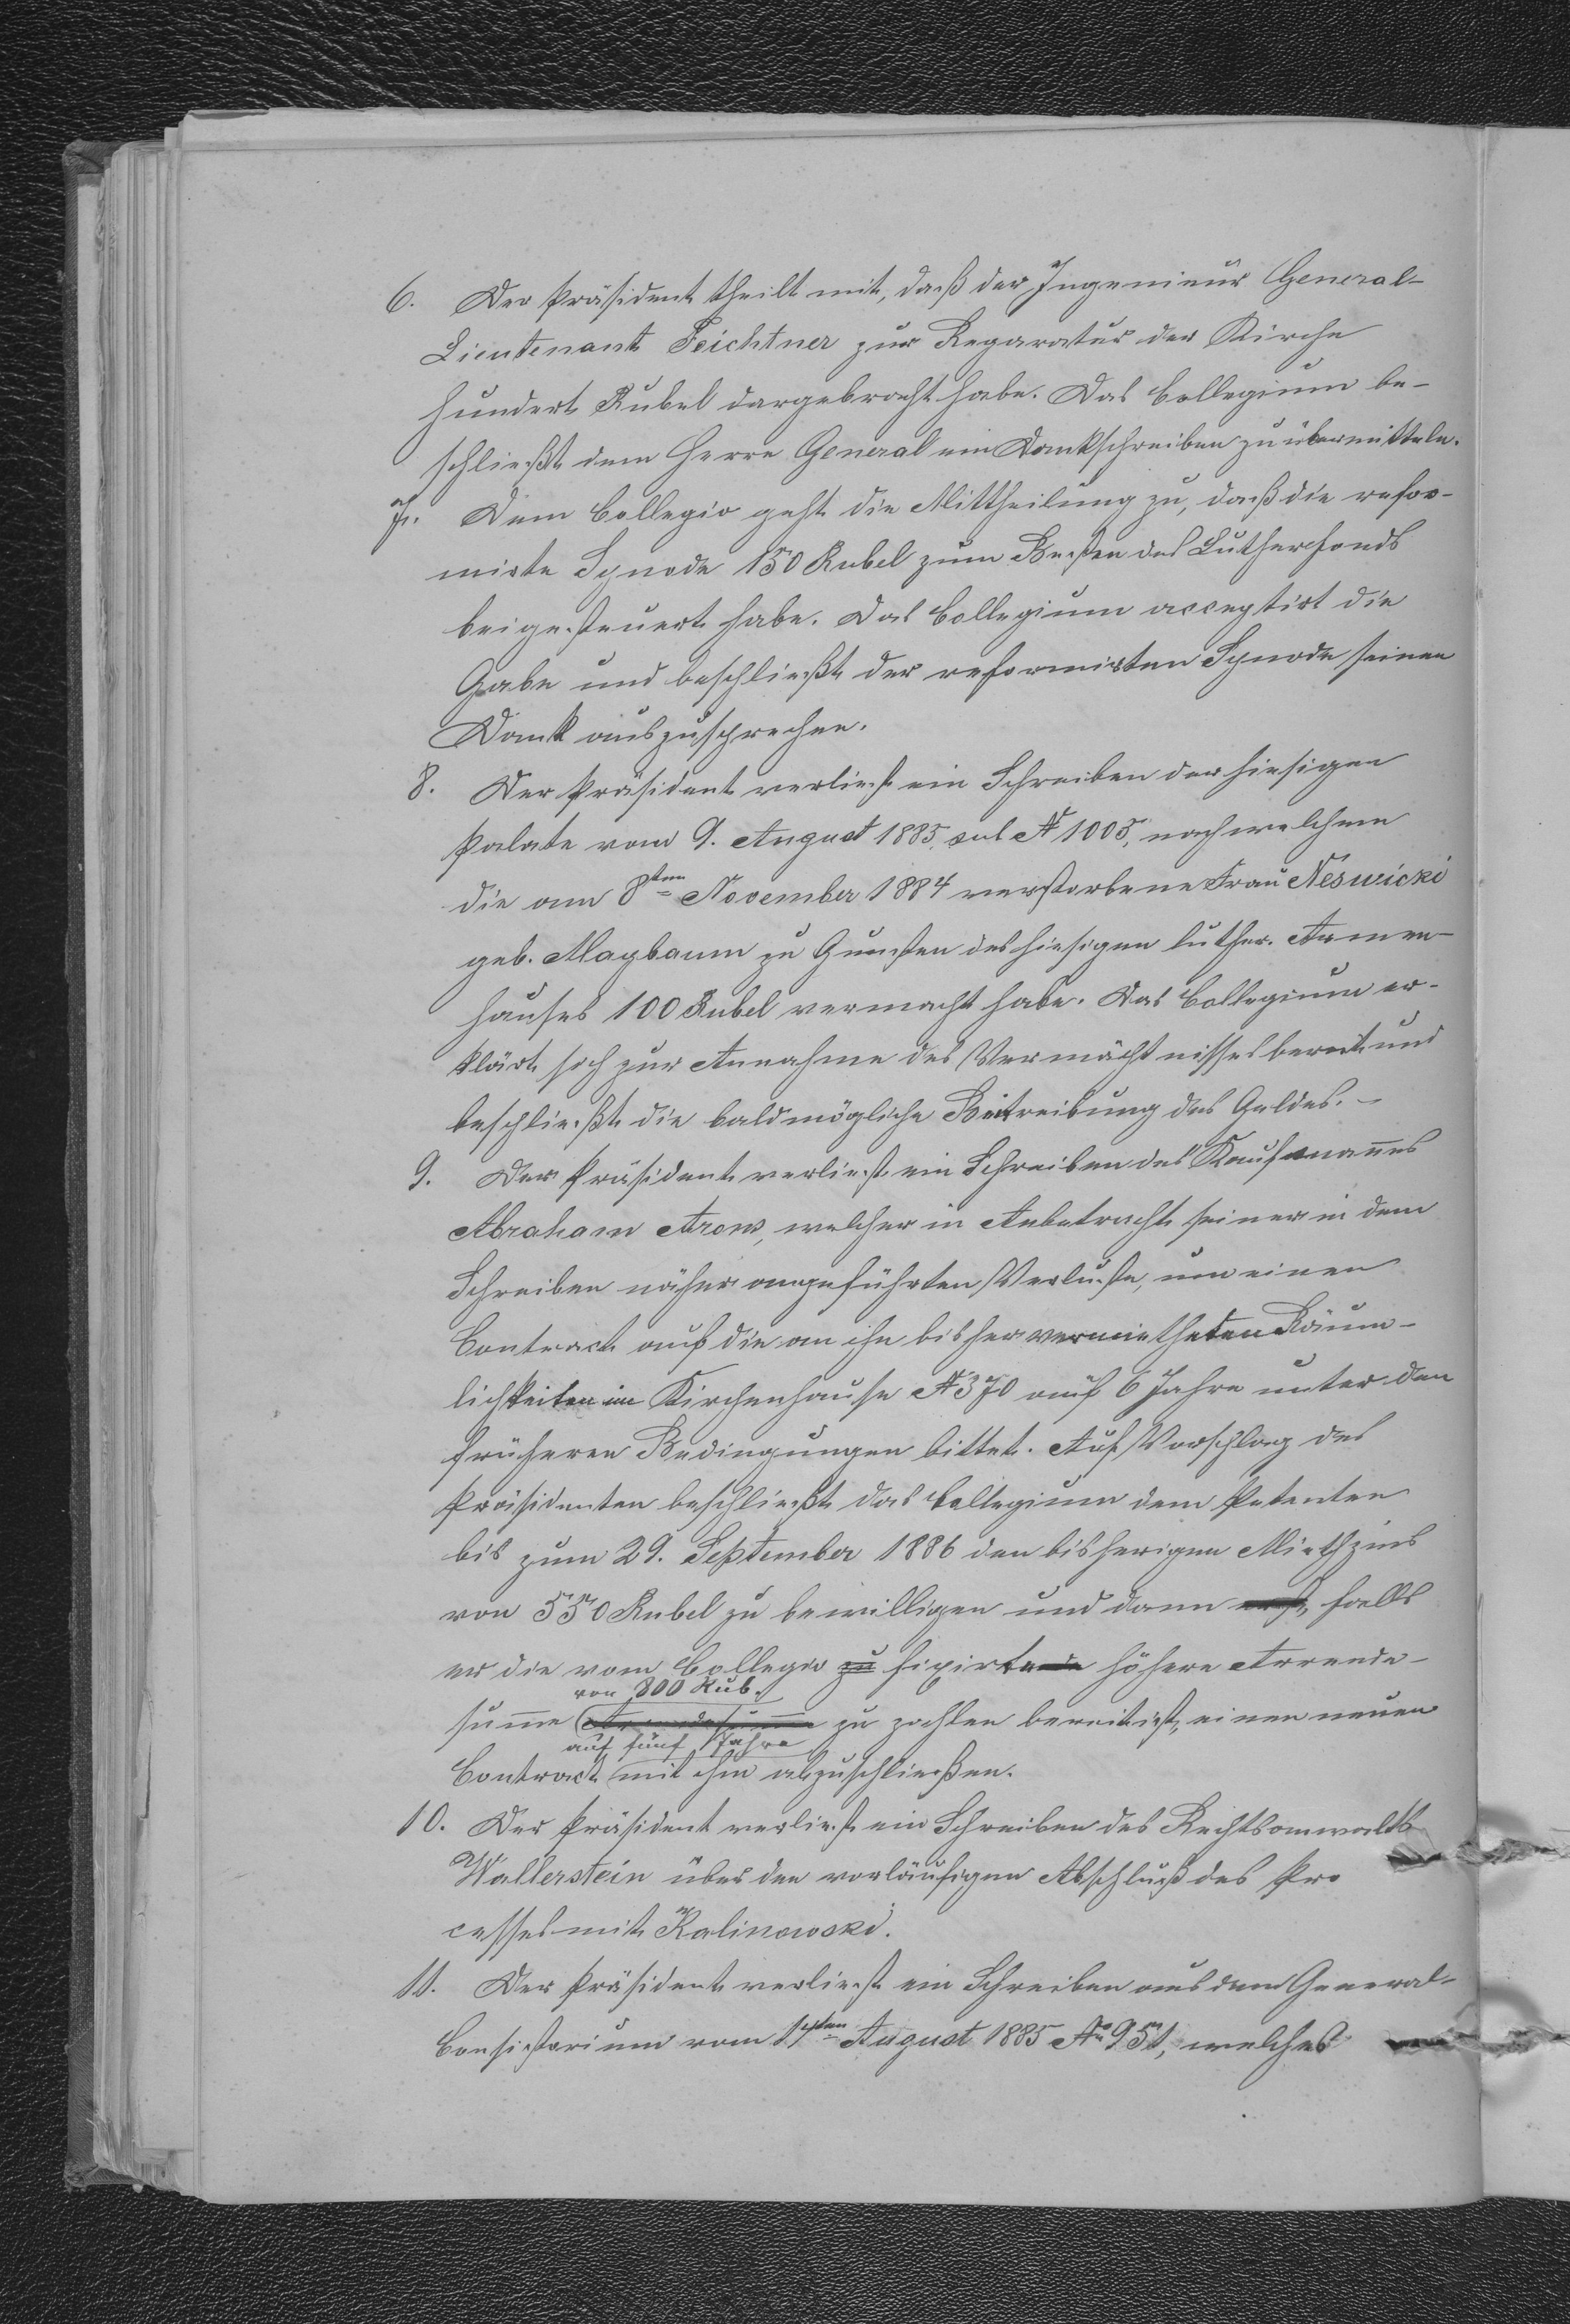 6. Der Präsident theilt mit, daß der Ingenieur General-
Lieutenant Feichtner zur Reparatur der Kirche
hundert Rubel dargebracht habe. Das Collegium be-
schließt dem Herrn General ein Dankschreiben zu übermitteln.
7. Dem Collegio geht die Mittheilung zu, daß die refor-
mirte Synode 150 Rubel zum Besten des Lutherfonds
beigesteuert habe. Das Collegium acceptirt die
Gabe und beschließt der reformirten Synode seinen
Dank auszusprechen.
8. Der Präsident verliest ein Schreiben der hiesigen
Palate vom 9. August 1885 sub № 1005, nach welchem
die am 8ten November 1884 verstorbene Frau Neswicki
geb. Magbaum zu Gunsten des hiesigen luther. Armen-
hauses 100 Rubel vermacht habe. Das Collegium er-
klärt sich zur Annahme des Vermächtnisses bereit und
beschließt die baldmögliche Beitreibung des Geldes. –
9. Der Präsident verliest ein Schreiben des Kaufmannes
Abraham Arons, welcher in Anbetracht seiner in dem
Schreiben näher angeführten Verluste, um einen
Contract auf die an ihn bisher vermietheten Räum-
lichkeiten im Kirchenhause № 370 auf 6 Jahre unter den
früheren Bedingungen bittet. Auf Vorschlag des
Präsidenten beschließt das Collegium dem Petenten
bis zum 29. September 1886 den bisherigen Miethzins
von 550 Rubel zu bewilligen und dann erst, falls
er die vom Collegio zu fixirte höhere Arrende-
von 800 Rub.
summe Arendesumme zu zahlen bereit ist, einen neuen
auf fünf Jahre
Contract mit ihm abzuschließen.
10. Der Präsident verliest ein Schreiben des Rechtsanwalts
Wallerstein über den vorläufigen Abschluß des Pro
cesses mit Kalinowski.
11. Der Präsident verliest ein Schreiben aus dem General-
Consistorium vom 17ten August 1885 № 951, welches